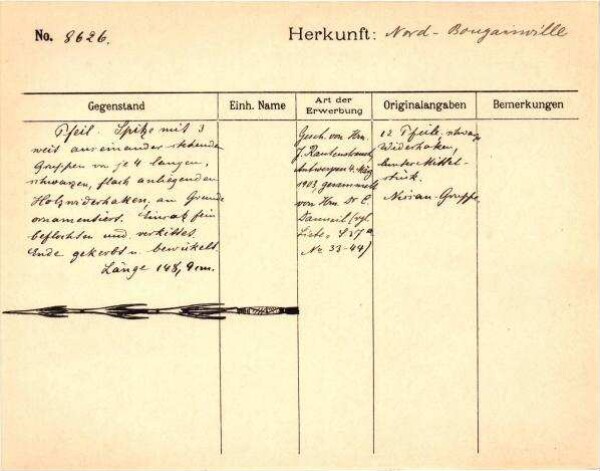 No. 8626.
Herkunft: Nord-Bougainville
Gegenstand
Einh. Name
Art der
Erwerbung
Originalangaben
Bemerkungen
Pfeil. Spitze mit 3
weit auseinander stehenden
Gruppen von je 4 langen,
schwarzen, flach anliegenden
Holzwiderhaken, am Grunde
ornamentiert. Einsatz fein
beflochten und verkittet.
Ende gekerbt u. bewickelt.
Länge 148,9 cm.
Gesch. von Hrn.
J. Rautenstrauch,
Antwerpen 4. März
1903, gesammelt
von Hrn. Dr
(vgl.
Liste S 37a
No 33-44)
12 Pfeile, schwarze
Widerhaken,
buntes Mittel-
stück.
Nissan-Gruppe.